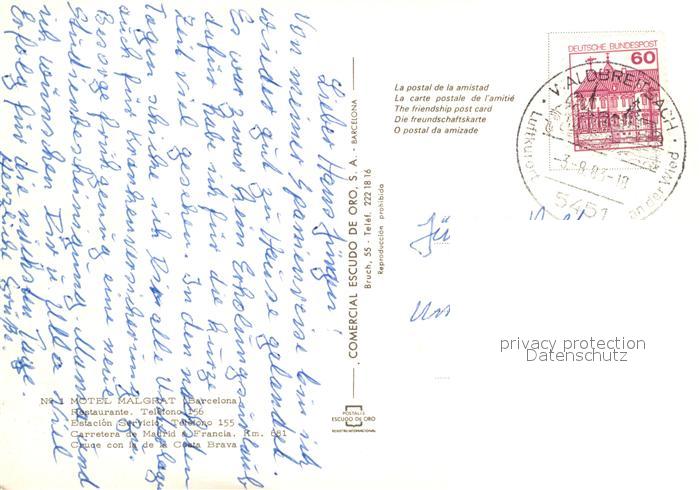 Lieber Hans Jürgen!
Von meiner Spanienreise bin ich
wieder gut zu Hause gelandet.
Es war zwar kein Erholungsurlaub
dafür habe ich für die kurze
Zeit viel gesehen. In den nächsten
Tagen schicke ich Dir alle Unterlagen
auch für Krankenversicherung zu.
Besorge frühzeitig eine neue
Studienbescheinigung. Mama und
ich wünschen Dir viel
Erfolg für die nächsten Tage.
Herzliche Grüße.
Nº 1 MOTEL MALGRAT (Barcelona)
Restaurante. Teléfono 156
Estación Servicio. Teléfono 155
Carretera de Madrid a Francia, Km. 681
Cruce con la de la Costa Brava
COMERCIAL ESCUDO DE ORO, S. A. - BARCELONA
Bruch, 55 - Teléf. 222 18 16
Reproducción prohibida
POSTALES
ESCUDO DE ORO
La postal de la amistad
La carte postale de l'amitié
The friendship post card
Die freundschaftskarte
O postal da amizade
DEUTSCHE BUNDESPOST
60
WALDBREITBACH
Luftkurort
an der Wied
-3.-8.83-18
5451
privacy protection
Datenschutz